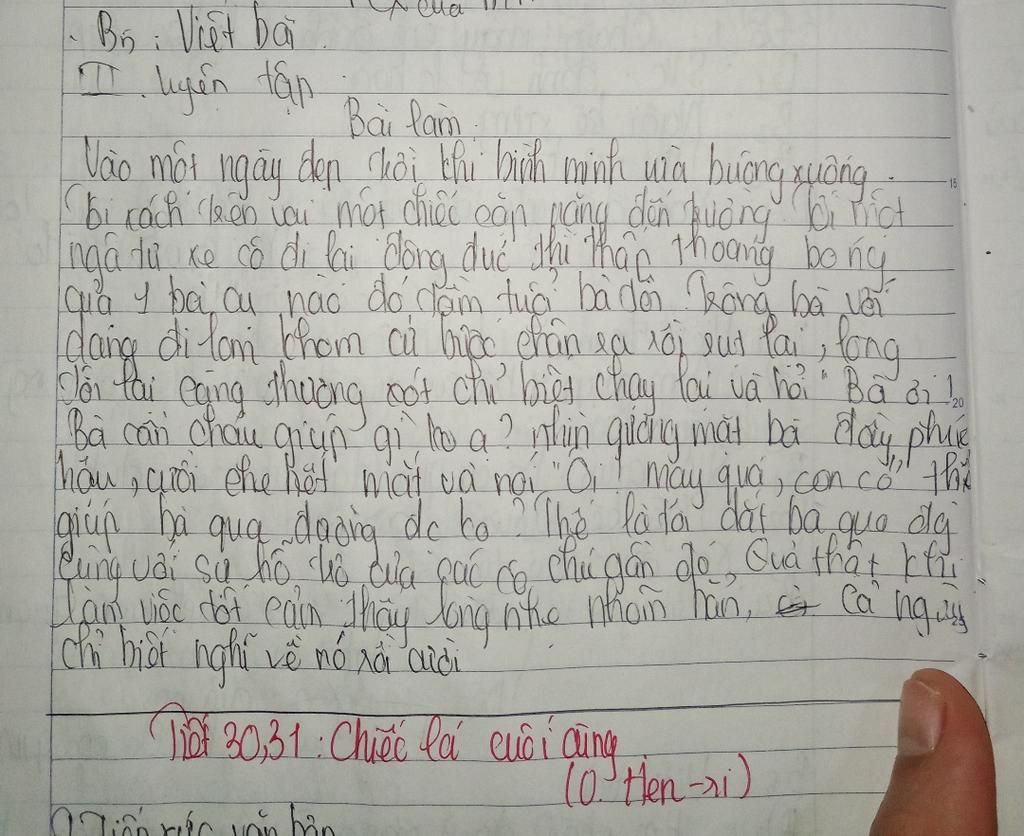 của
. B5 : Viết bài.
II. luyện tập
Bài làm.
Vào một ngày đẹp trời khi bình minh vừa buông xuống.
Tôi xách trên vai một chiếc cặp nặng đến trường. Tới một
ngã tư xe cộ đi lại đông đúc thì thấp thoáng bóng
của 1 bà cụ nào đó tầm tuổi bà tôi. Trông bà với
dáng đi lom khom cứ bước chân ra rồi rụt lại, lòng
tôi lại càng thương xót chỉ biết chạy lại và hỏi "Bà ơi!
Bà cần cháu giúp gì ko ạ? nhìn gương mặt bà đầy phúc
hậu, cười che hết mắt và nói "Ôi! may quá, con có thể
giúp bà qua đường dc ko? Thế là tôi dắt bà qua đg
cùng với sự hỗ trợ của các cô chú gần đó, Quả thật khi
làm việc tốt cảm thấy lòng nhẹ nhõm hẳn, Cả ngày
chỉ biết nghĩ về nó rồi cười
Tiết 30,31: Chiếc lá cuối cùng
(O. Hen-ri)
văn bản